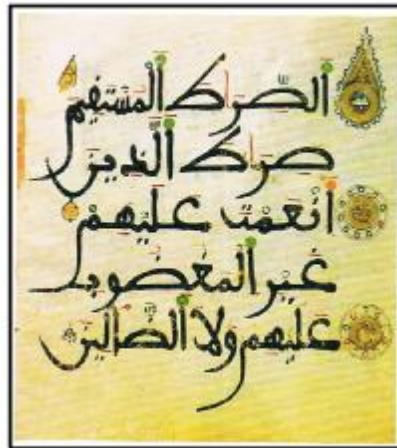 الصِّرَاطَ الْمُسْتَقِيمَ
صِرَاطَ الَّذِينَ
أَنْعَمْتَ عَلَيْهِمْ
غَيْرِ الْمَغْضُوبِ
عَلَيْهِمْ وَلَا الضَّالِّينَ